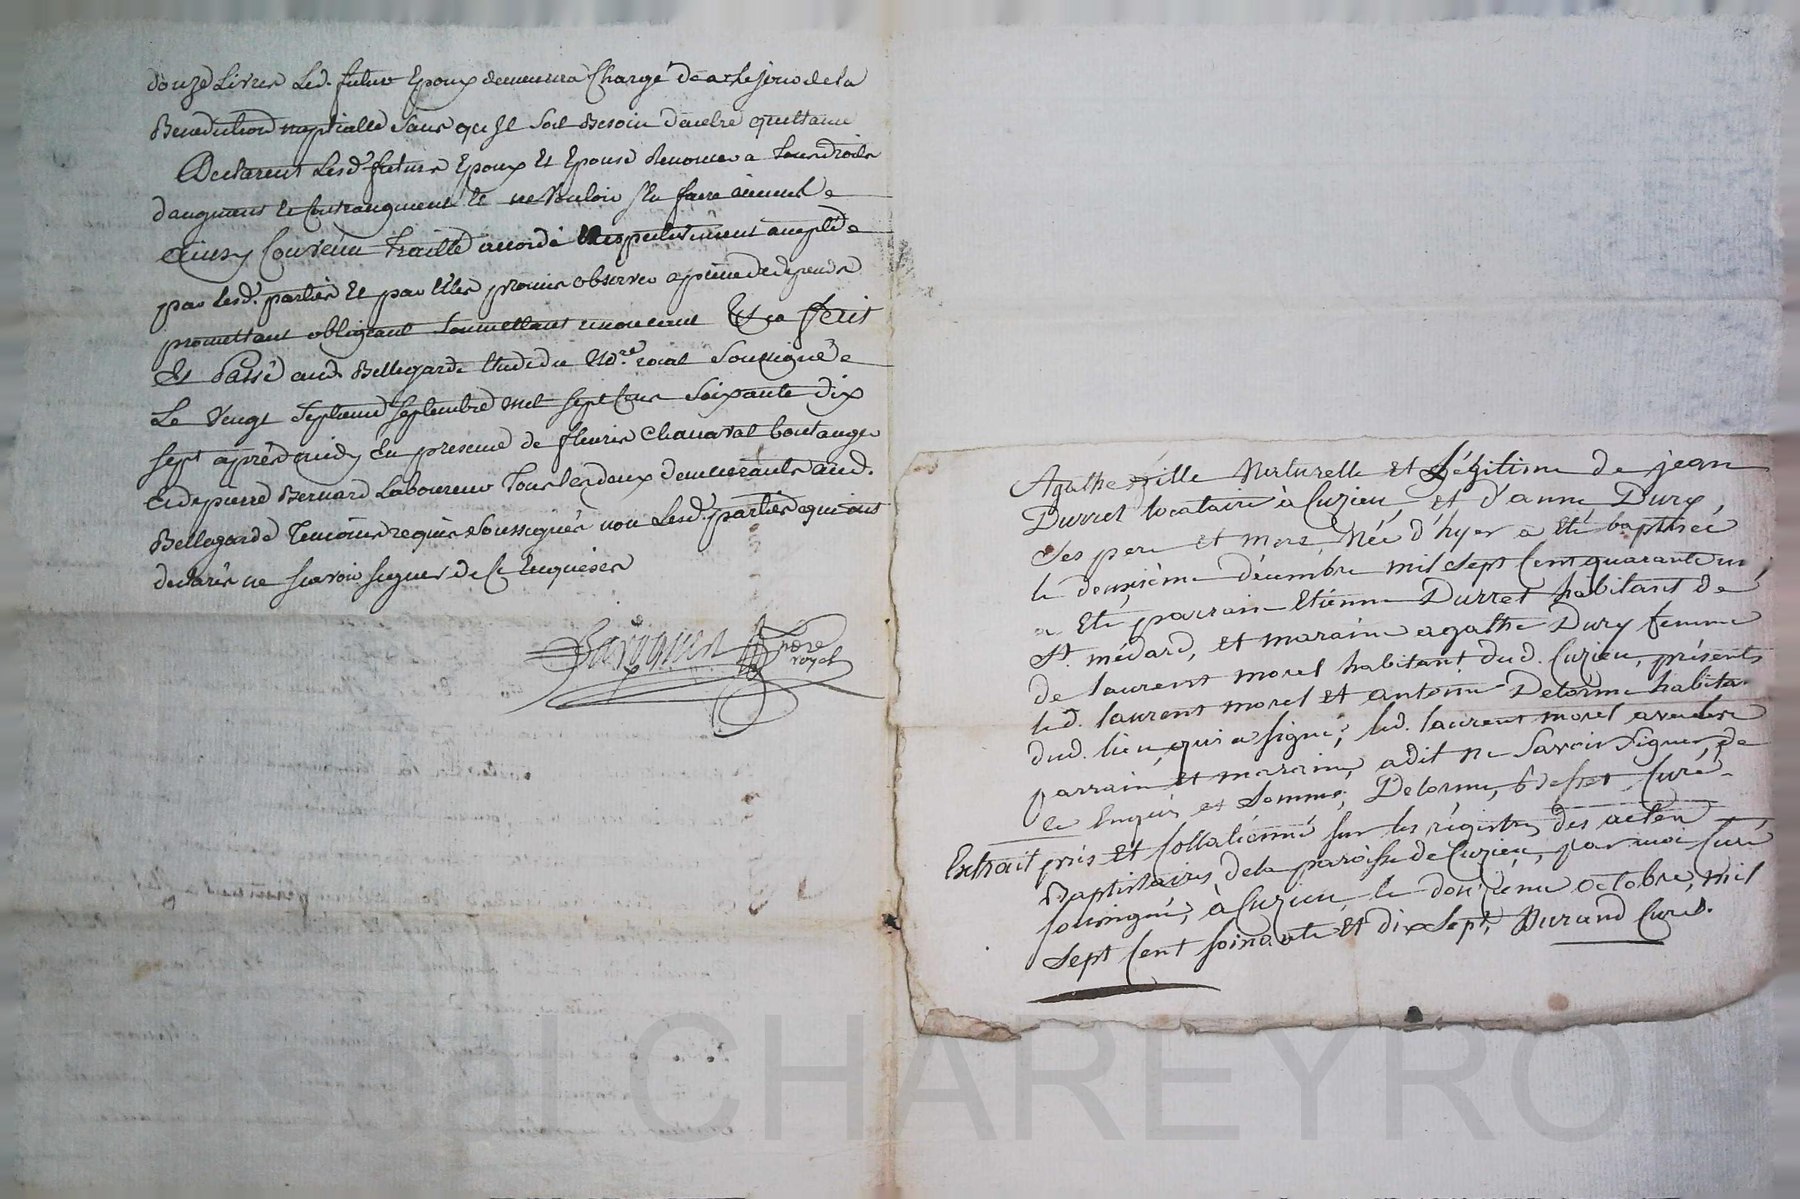 douze Livres Led. futur Epoux demeurera Chargé de ce Le jour de la
Benediction nuptialle sans qu'il soit Besoin d'autre quittance
Declarent Lesd. futurs Epoux Et Epouse Renoncer a tous droits
d'augment et Contraugment et ne Vouloir s'en faire aucuns
Ainsy Convenu Traitté accordé Respectivement accepté
par Lesd. parties Et par Elles promis observer a peine de depends
promettant obligeant soumettant renonceant Et ce fait
Et Passé aud. Bellegarde Etude du No.re roial Soussigné
Le Vengt Septieme Septembre mil sept Cens soixante dix
sept après midy En presence de fleurie Chanavat boulanger
Et de pierre Bernard Laboureur tous les deux demeurants aud.
Bellegarde Temoins requis Soussignés non Lesd. parties qui ont
declarés ne scavoir signer de Ce Enquises
No.re
royal
Agathe fille Naturelle et Légitime de jean
Durret locataire à Cuzieu, et d'anne Dury,
ses pere et mere, Née d'hyer a Eté baptisée
le deuxième décembre mil sept Cent quarante un,
a Eté parrain Etienne Durret habitant de
St. médard, et maraine agathe Dury femme
de laurent morel habitant dud. Cuzieu, présents
led. laurent morel et antoine Delorme habitant
dud. lieu, qui a signé; led. laurent morel avec les
parrain et maraine, a dit ne Savoir Signer, de
ce Enquis et Sommé; Delorme, Curé
Extrait pris et Collationné sur les régistres des actes
Baptistaires de la paroisse de Cuzieu, par moi Curé
soussigné, à Cuzieu, le douzième octobre, mil
sept Cent soixante et dix sept, Durand Curé.
CHAREYRO